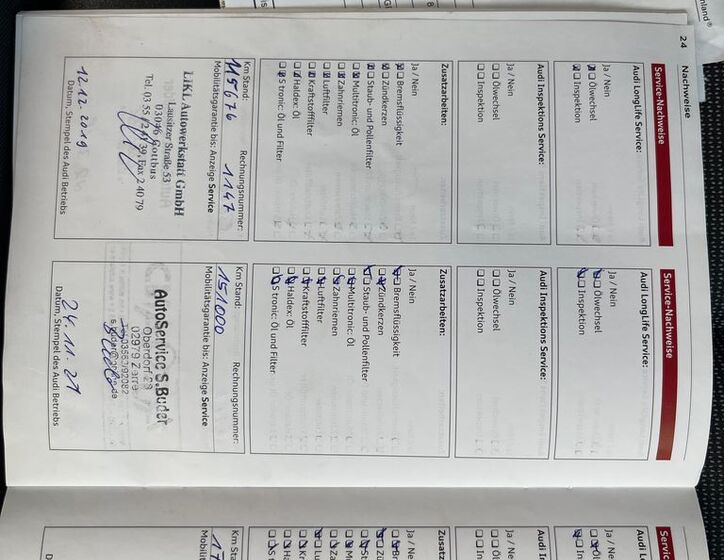 24 Nachweise
Service-Nachweise
Audi LongLife Service:
Ja / Nein
Ölwechsel
Inspektion
Audi Inspektions Service:
Ja / Nein
Ölwechsel
Inspektion
Zusatzarbeiten:
Ja / Nein
Bremsflüssigkeit
Zündkerzen
Staub- und Pollenfilter
Multitronic: Öl
Zahnriemen
Luftfilter
Kraftstofffilter
Haldex: Öl
S tronic: Öl und Filter
Km Stand: Rechnungsnummer:
115676 1147
Mobilitätsgarantie bis: Anzeige Service
LIKI Autowerkstatt GmbH
Lausitzer Straße 53
03046 Cottbus
Tel. 03 55
Fax 2 40 79
12.12.2019
Datum, Stempel des Audi Betriebs
Service-Nachweise
Audi LongLife Service:
Ja / Nein
Ölwechsel
Inspektion
Audi Inspektions Service:
Ja / Nein
Ölwechsel
Inspektion
Zusatzarbeiten:
Ja / Nein
Bremsflüssigkeit
Zündkerzen
Staub- und Pollenfilter
Multitronic: Öl
Zahnriemen
Luftfilter
Kraftstofffilter
Haldex: Öl
S tronic: Öl und Filter
Km Stand: Rechnungsnummer:
151000
Mobilitätsgarantie bis: Anzeige Service
AutoService S.Buder
Oberdorf
02979
24.11.21
Datum, Stempel des Audi Betriebs
Ja / Ne
Ja / Ne
Km Sta
Mobilit